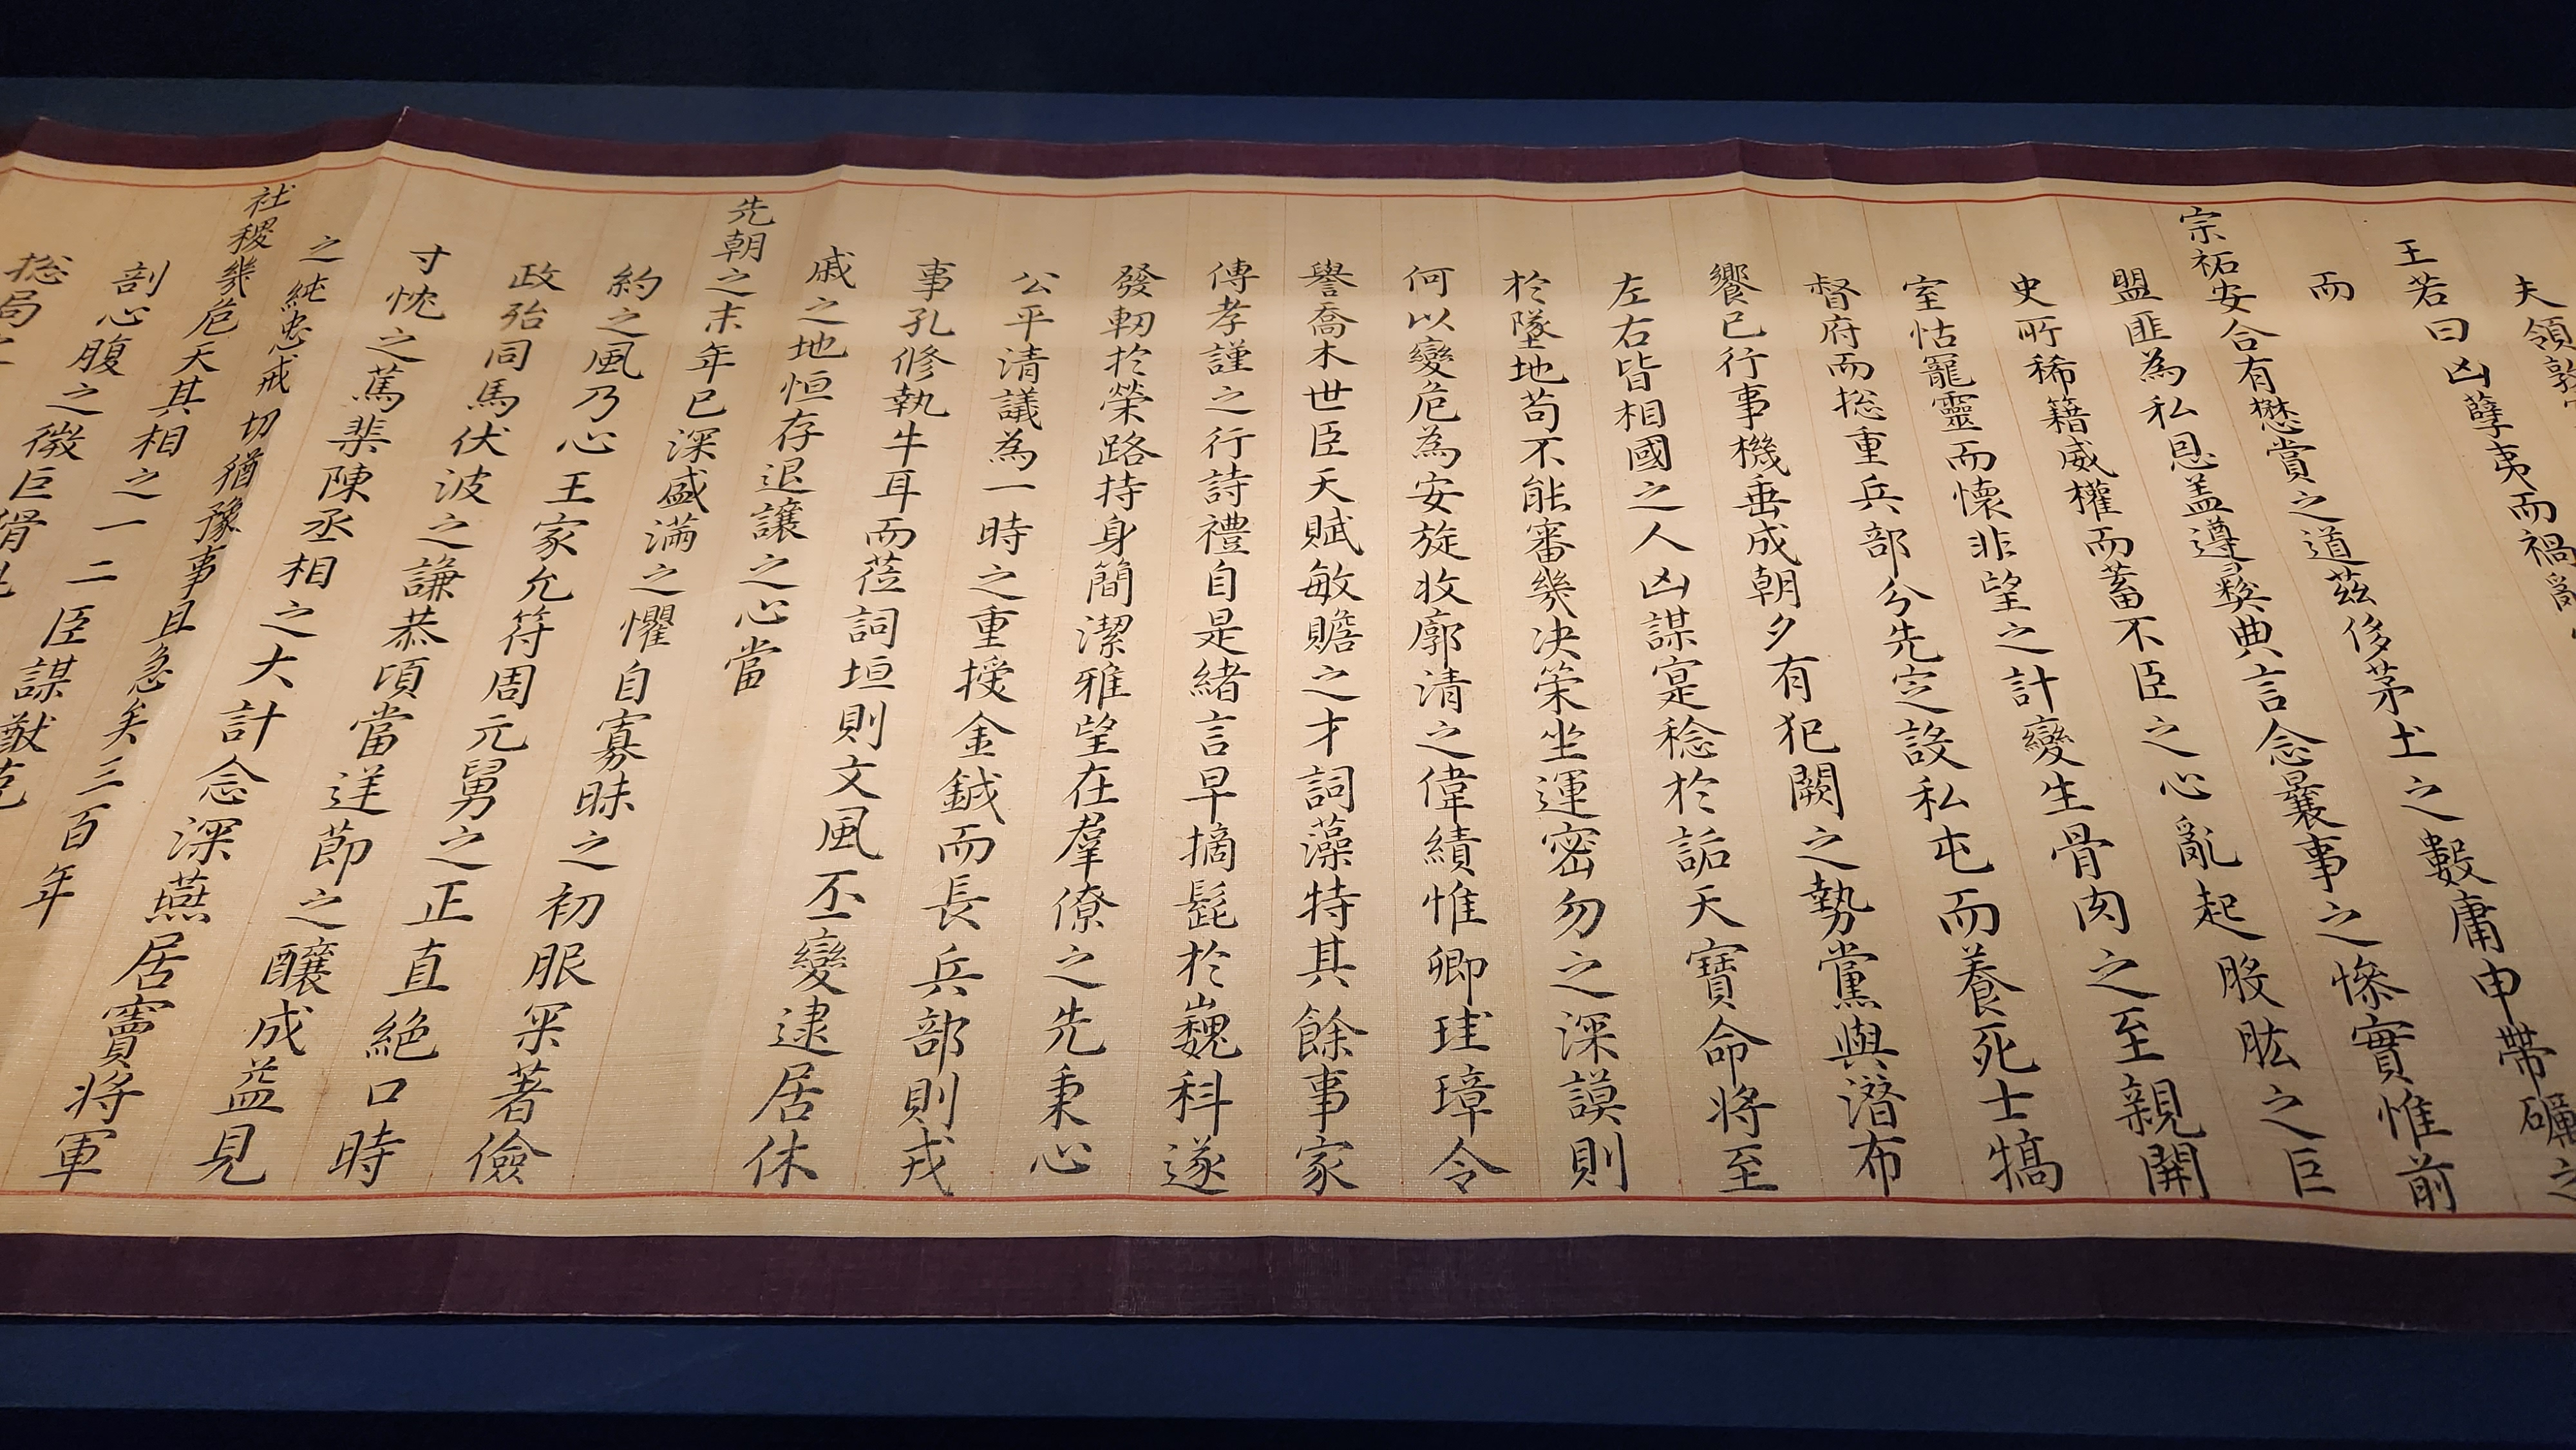 夫領敦
王若曰凶孽夷而禍亂
而
宗祏安合有懋賞之道茲侈茅土之數庸申帶礪之
盟匪為私恩盖遵彜典言念曩事之慘實惟前
史所稀藉威權而蓄不臣之心亂起股肱之臣
室怙寵靈而懷非望之計變生骨肉之至親開
督府而摠重兵部分先定設私屯而養死士犒
饗已行事機垂成朝夕有犯闕之勢黨與潛布
左右皆相國之人凶謀寔稔於詬天寶命將至
於墜地苟不能審幾决策坐運密勿之深謨則
何以變危為安旋收廓清之偉績惟卿珪璋令
譽喬木世臣天賦敏贍之才詞藻特其餘事家
傳孝謹之行詩禮自是緒言早摘髭於巍科遂
發軔於榮路持身簡潔雅望在羣僚之先秉心
公平清議為一時之重授金鉞而長兵部則戎
事孔修執牛耳而莅詞垣則文風丕變逮居休
戚之地恒存退讓之心當
先朝之末年已深盛滿之懼自寡昧之初服冞著儉
約之風乃心王家允符周元舅之正直絕口時
政殆同馬伏波之謙恭頃當逆節之釀成益見
寸忱之篤棐陳丞相之大計念深燕居竇將軍
之純忠戒切猶豫事且急矣三百年
社稷幾危天其相之一二臣謀猷克
剖心腹之徵巨猾
摠局